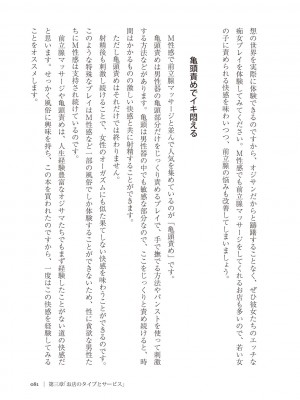 想の世界を実際に体験できるのですから、オジサンだからと躊躇することなく、ぜひ彼女たちのエッチな
痴女プレイを体験してみてください。M性感でも前立腺マッサージをしてくれるお店も多いので、若い女
の子に責められる快感を味わいつつ、前立腺の悩みも改善してしまいましょう。
亀頭責めでイキ悶える
M性感で前立腺マッサージと並んで人気を集めているのが「亀頭責め」です。
亀頭責めは男性器の亀頭部分だけをじっくりと責めるプレイで、手で撫でる方法やパンストを使って刺激
する方法などがあります。亀頭は男性器の中でも敏感な部分なので、ここをじっくりと責め続けると、時
間はかかるものの激しい快感と共に射精することができます。
ただし亀頭責めはそれだけでは終わりません。
射精後も刺激し続けることで、女性のオーガズムにも似た果てしない快感を味わうことができるのです。
このような特殊なプレイはM性感など一部の風俗でしか体験することができないため、性に貪欲な男性た
ちにM性感は支持されているのです。
前立腺マッサージや亀頭責めは、人生経験豊富なオジサマたちでもまず経験したことがない道の快感だ
と思います。せっかく風俗に興味を持ち、この本を買われたのですから、一度はこの快感を経験してみる
ことをオススメします。
081 第三章「お店のタイプとサービス」